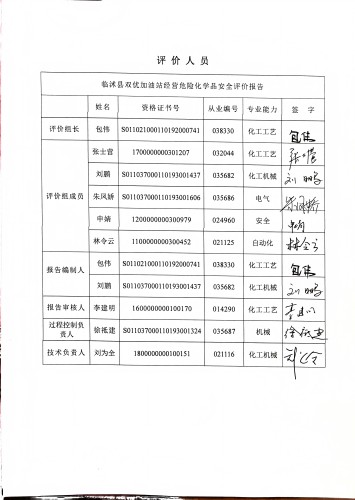 评价人员
临沭县双优加油站经营危险化学品安全评价报告
姓名 资格证书号 从业编号 专业能力 签字
评价组长 包伟 S011021000110192000741 038330 化工工艺 包伟
评价组成员 张士营 1700000000301207 032044 化工工艺 张士营
刘鹏 S011037000110193001437 035682 化工机械 刘鹏
朱凤娇 S011037000110193001606 035686 电气 朱凤娇
申娟 1200000000300979 024960 安全
林令云 1100000000300452 021125 自动化 林令云
报告编制人 包伟 S011021000110192000741 038330 化工工艺 包伟
刘鹏 S011037000110193001437 035682 化工机械 刘鹏
报告审核人 李建明 1600000000100170 014290 化工工艺
过程控制负
责人 徐祗建 S011037000110193001324 035687 机械
技术负责人 刘为全 1800000000100151 021116 化工机械